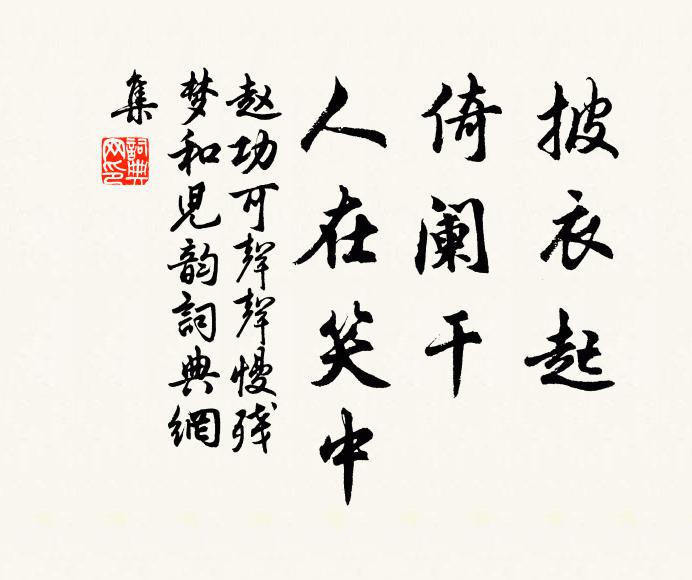 披衣起
倚阑干
人在笑中
赵功可聲聲慢残
梦和児韵詞典網
集
詞典
网印